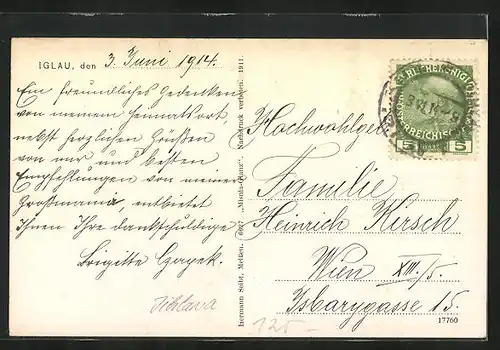 IGLAU, den 3. Juni 1914.
Ein freundliches Gedenken
von meinem Heimatsort,
nebst herzlichen Grüssen
von mir und besten
Empfehlungen von meiner
Grossmama, entbietet
Ihnen Ihre dankschuldige
Brigitte
Jihlava
Hermann Seibt, Meißen, dep. „Miunia-Glanz“ Nachdruck verboten. 1911.
Hochwohlgeb
Familie
Heinrich Kirsch
Wien XIII/5.
Isbarygasse 15.
17760
120-
5 5